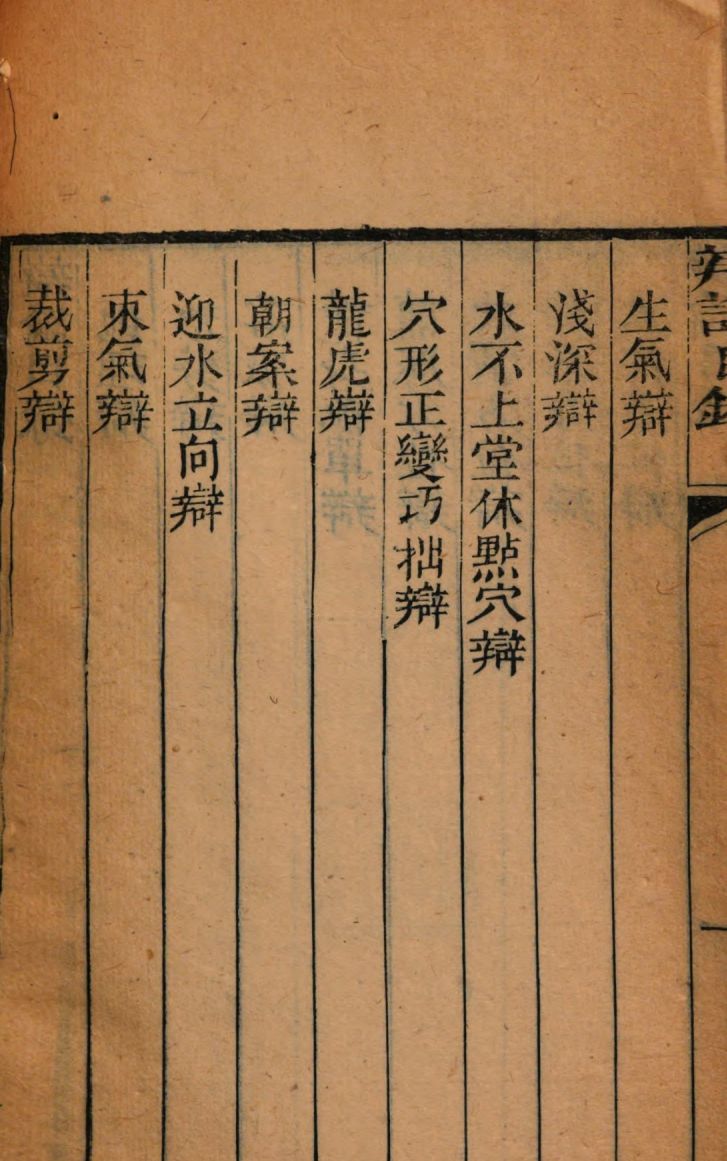 生氣辯
淺深辯
水不上堂休點穴辯
穴形正變巧拙辯
龍虎辯
朝案辯
迎水立向辯
束氣辯
裁剪辯